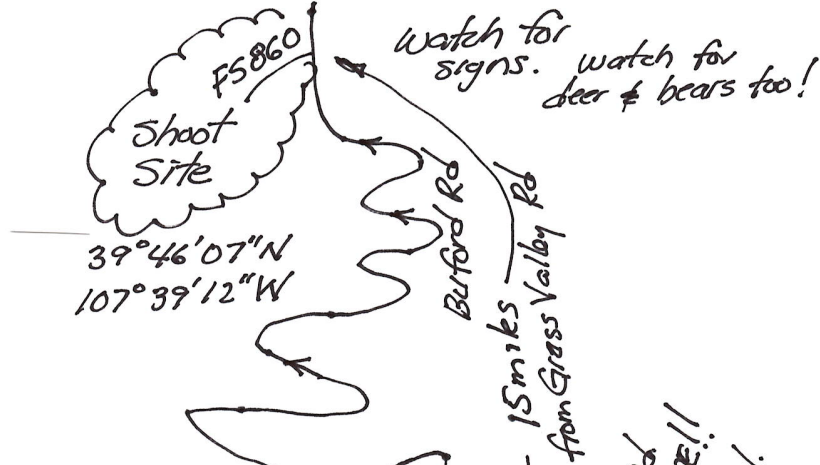 FS860
Shoot
Site
39°46'07"N
107°39'12"W
watch for
signs.
watch for
deer & bears too!
Buford Rd
15 miles
from Grass Valley Rd